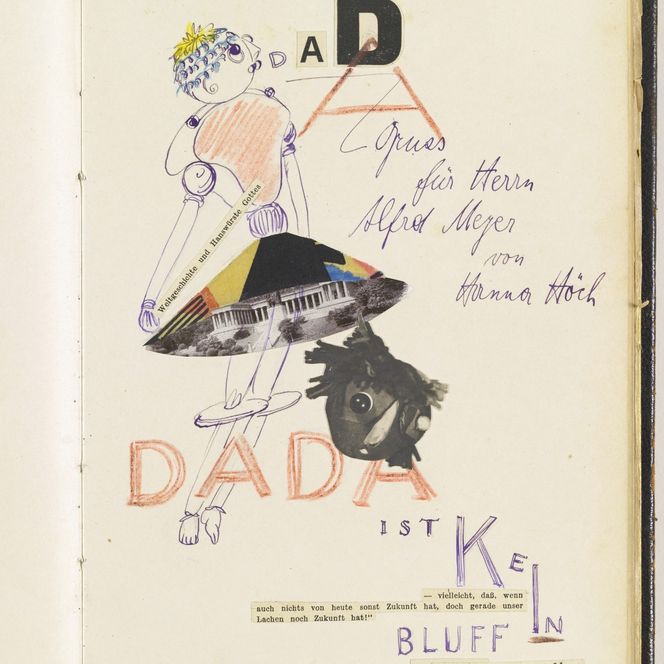 DADA
Gruss
für Herrn
Alfred Meyer
von
Hannah Höch
Weltgeschichte und Hanswürste Gottes
DADA
IST KEIN
— vielleicht, daß, wenn
auch nichts von heute sonst Zukunft hat, doch gerade unser
Lachen noch Zukunft hat!"
BLUFF